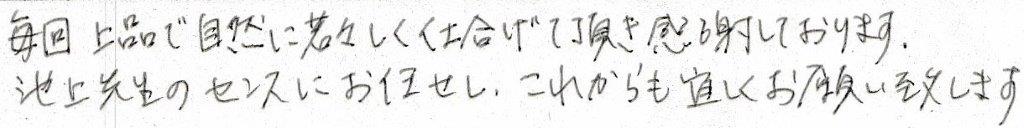 毎回上品で自然に若々しく仕合げて頂き感謝しております.
池上先生のセンスにお任せし、これからも宜しくお願い致します